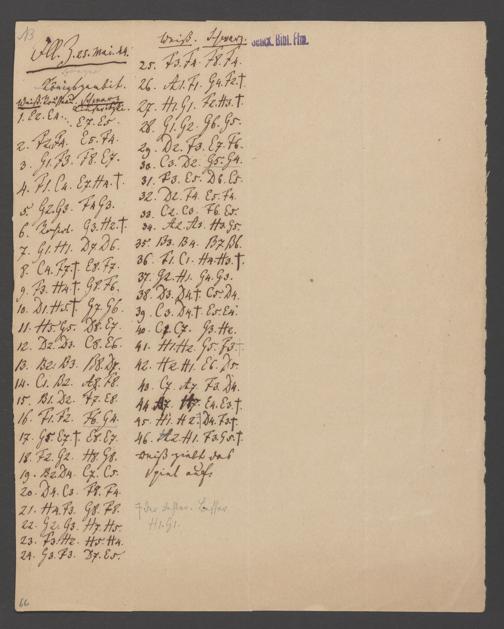 13
25. Mai. 44.
Königsgambit.
Weiß. Schwarz.
1. E2.E4. E7.E5.
2. F2.F4. E5.F4.
3. G1.F3. F8.E7.
4. F1.C4. E7.H4.†
5. G2.G3. F4.G3.
6. G3.H2.†
7. G1.H1. D7.D6.
8. C4.F7.† E8.F7.
9. F3.H4.† G8.F6.
10. D1.H5.† G7.G6.
11. H5.G5. D8.E7.
12. D2.D3. C8.E6.
13. B2.B3. B8.D7.
14. C1.B2. A8.F8.
15. B1.D2. F7.E8.
16. F1.F2. F6.G4.
17. G5.E7.† E8.E7.
18. F2.G2. H8.G8.
19. B2.D4. C7.C5.
20. D4.C3. F8.F4.
21. H4.F3. G8.F8.
22. G2.G3. H7.H5.
23. F3.H2. H5.H4.
24. G3.F3. D7.E5.
Weiß. Schwarz.
25. F3.F4. F8.F4.
26. A1.F1. G4.F2.†
27. H1.G1. F2.H3.†
28. G1.G2. G6.G5.
29. D2.F3. E7.F6.
30. C3.D2. G5.G4.
31. F3.E5. D6.E5.
32. D2.F4. E5.F4.
33. C2.C3. F6.E5.
34. A2.A3. H3.G5.
35. B3.B4. B7.B6.
36. F1.C1. H4.H3.†
37. G2.H1. G4.G3.
38. D3.D4.† C5.D4.
39. C3.D4.† E5.E4.
40. C1.C7. G3.H2.
41. H1.H2. G5.F3.†
42. H2.H1. E6.D5.
43. C7.A7. F3.D4.
44. A7.H7. E4.E3.†
45. H1.H2. D4.F3.†
46. H2.H1. F3.G5.†
Weiß giebt das
Spiel auf.
H1.G1.
Senck. Bibl. Ffm.
66